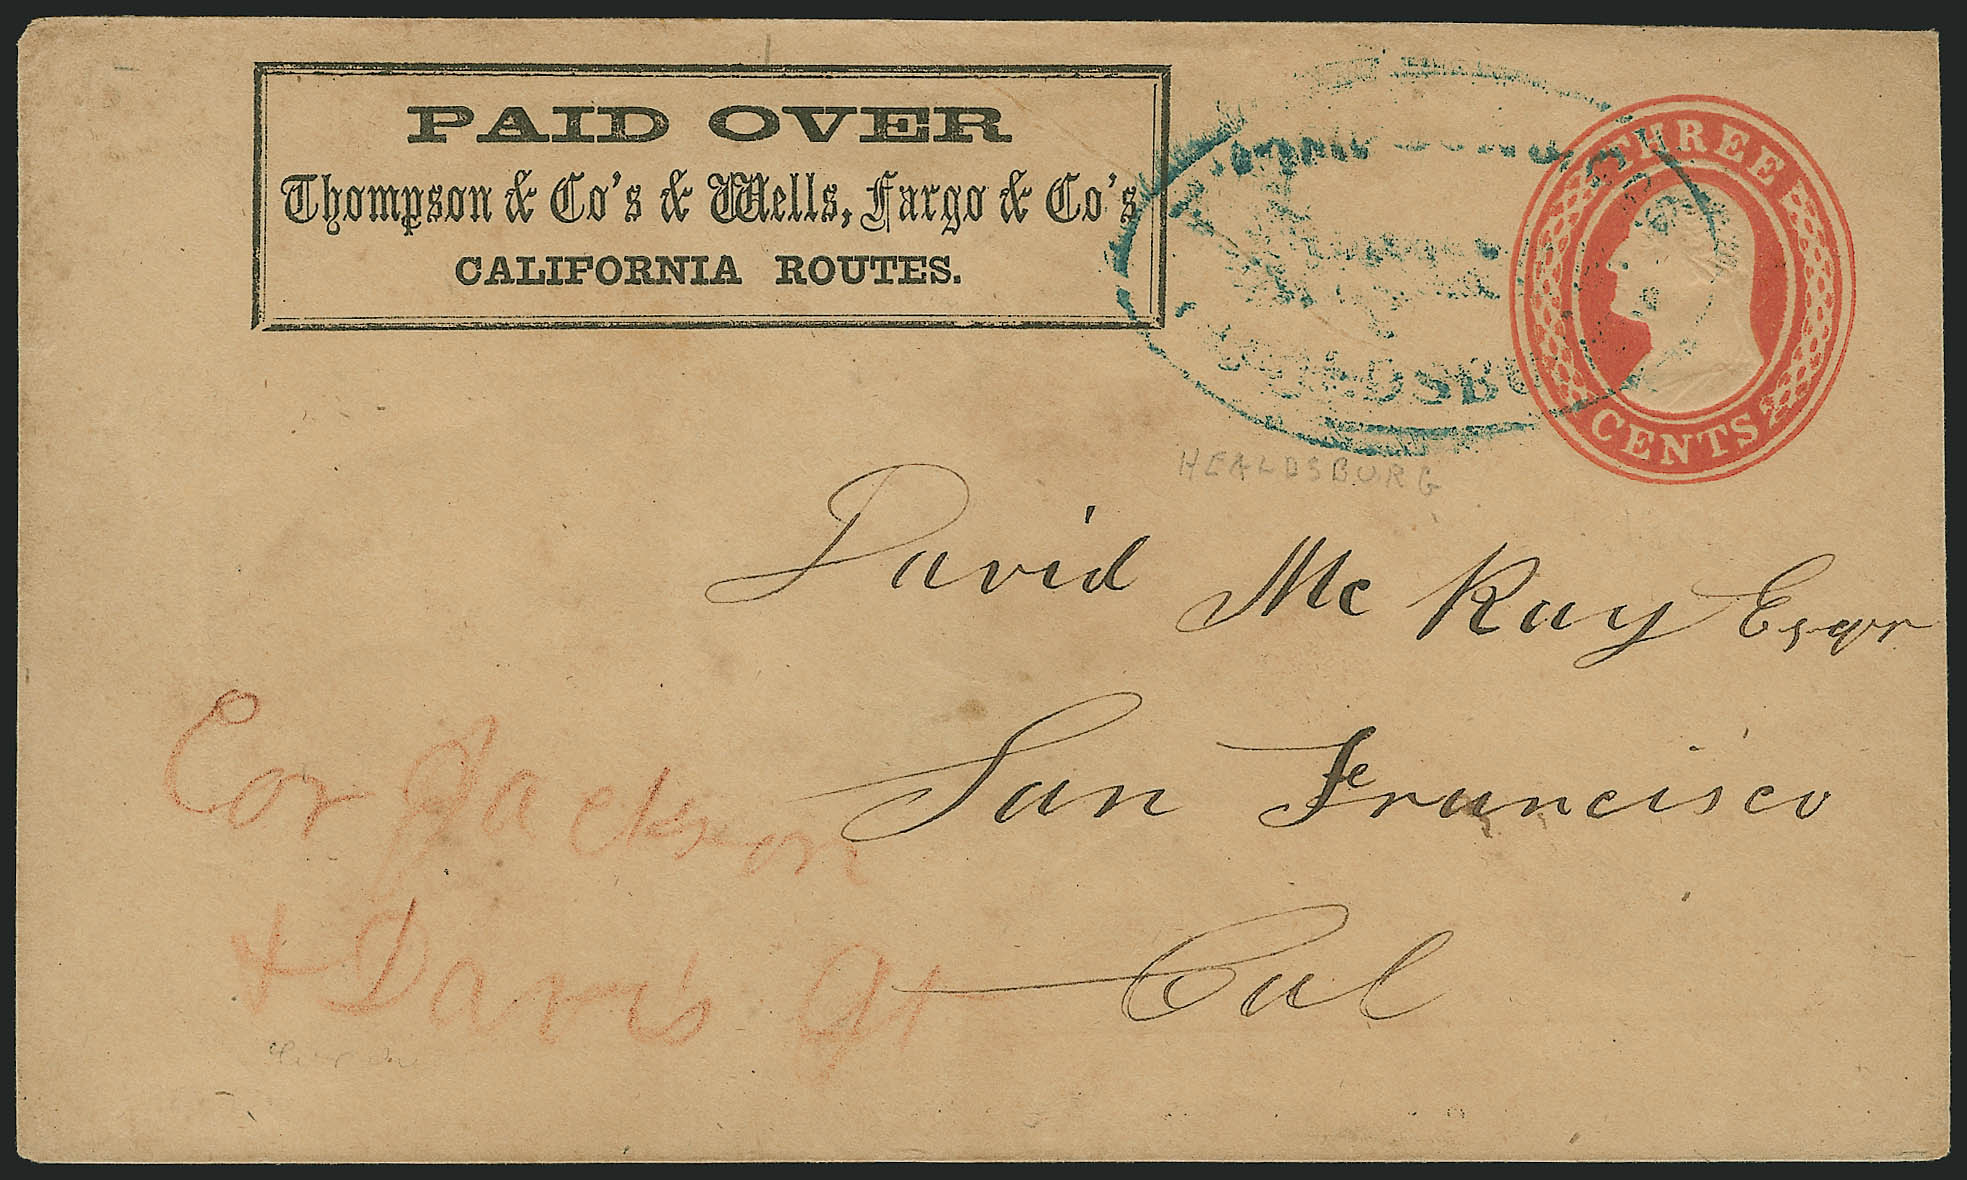 PAID OVER
Thompson & Co's & Wells, Fargo & Co's
CALIFORNIA ROUTES.
THREE
CENTS
HEALDSBURG
David Mc Kay Esqr
San Francisco
Cal
Cor Jackson
+ Davis St